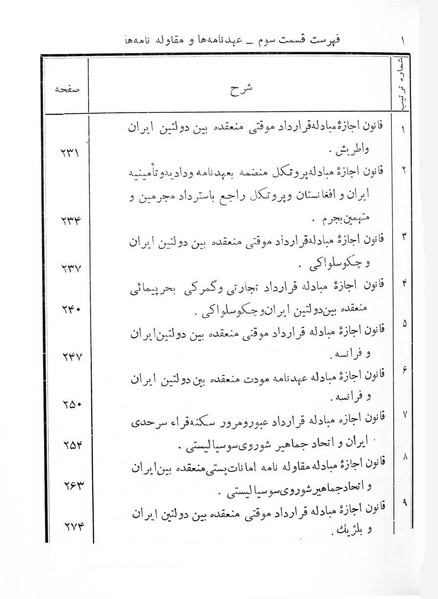 فهرست قسمت سوم ـ عهدنامه‌ها و مقاوله نامه‌ها
۱
شماره ترتیب
شرح
صفحه
۱
قانون اجازهٔ مبادله قرارداد موقتی منعقده بین دولتین ایران
و اطریش .
۲۳۱
۲
قانون اجازهٔ مبادله پروتکل منضمه بعهدنامه ودادیه و تأمینیه
ایران و افغانستان و پروتکل راجع باسترداد مجرمین و
متهمین بجرم .
۲۳۴
۳
قانون اجازهٔ مبادله قرارداد موقتی منعقده بین دولتین ایران
و چکوسلواکی .
۲۳۷
۴
قانون اجازهٔ مبادله قرارداد تجارتی و گمرکی بحرپیمائی
منعقده بین دولتین ایران و چکوسلواکی .
۲۴۰
۵
قانون اجازهٔ مبادله قرارداد موقتی منعقده بین دولتین ایران
و فرانسه .
۲۴۷
۶
قانون اجازهٔ مبادله عهدنامه مودت منعقده بین دولتین ایران
و فرانسه .
۲۵۰
۷
قانون اجازه مبادله قرارداد عبور و مرور سکنه قراء سرحدی
ایران و اتحاد جماهیر شوروی سوسیالیستی .
۲۵۴
۸
قانون اجازهٔ مبادله مقاوله نامه امانات پستی منعقده بین ایران
و اتحاد جماهیر شوروی سوسیالیستی .
۲۶۳
۹
قانون اجازهٔ مبادله قرارداد موقتی منعقده بین دولتین ایران
و بلژیك .
۲۷۴